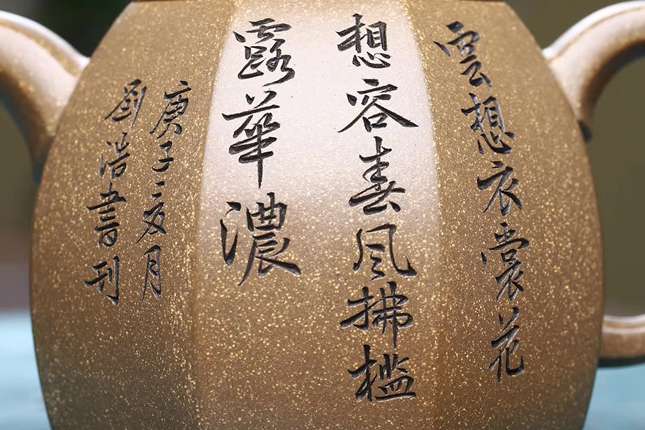 雲想衣裳花
想容春風拂檻
露華濃
庚子亥月
劉浩書刊